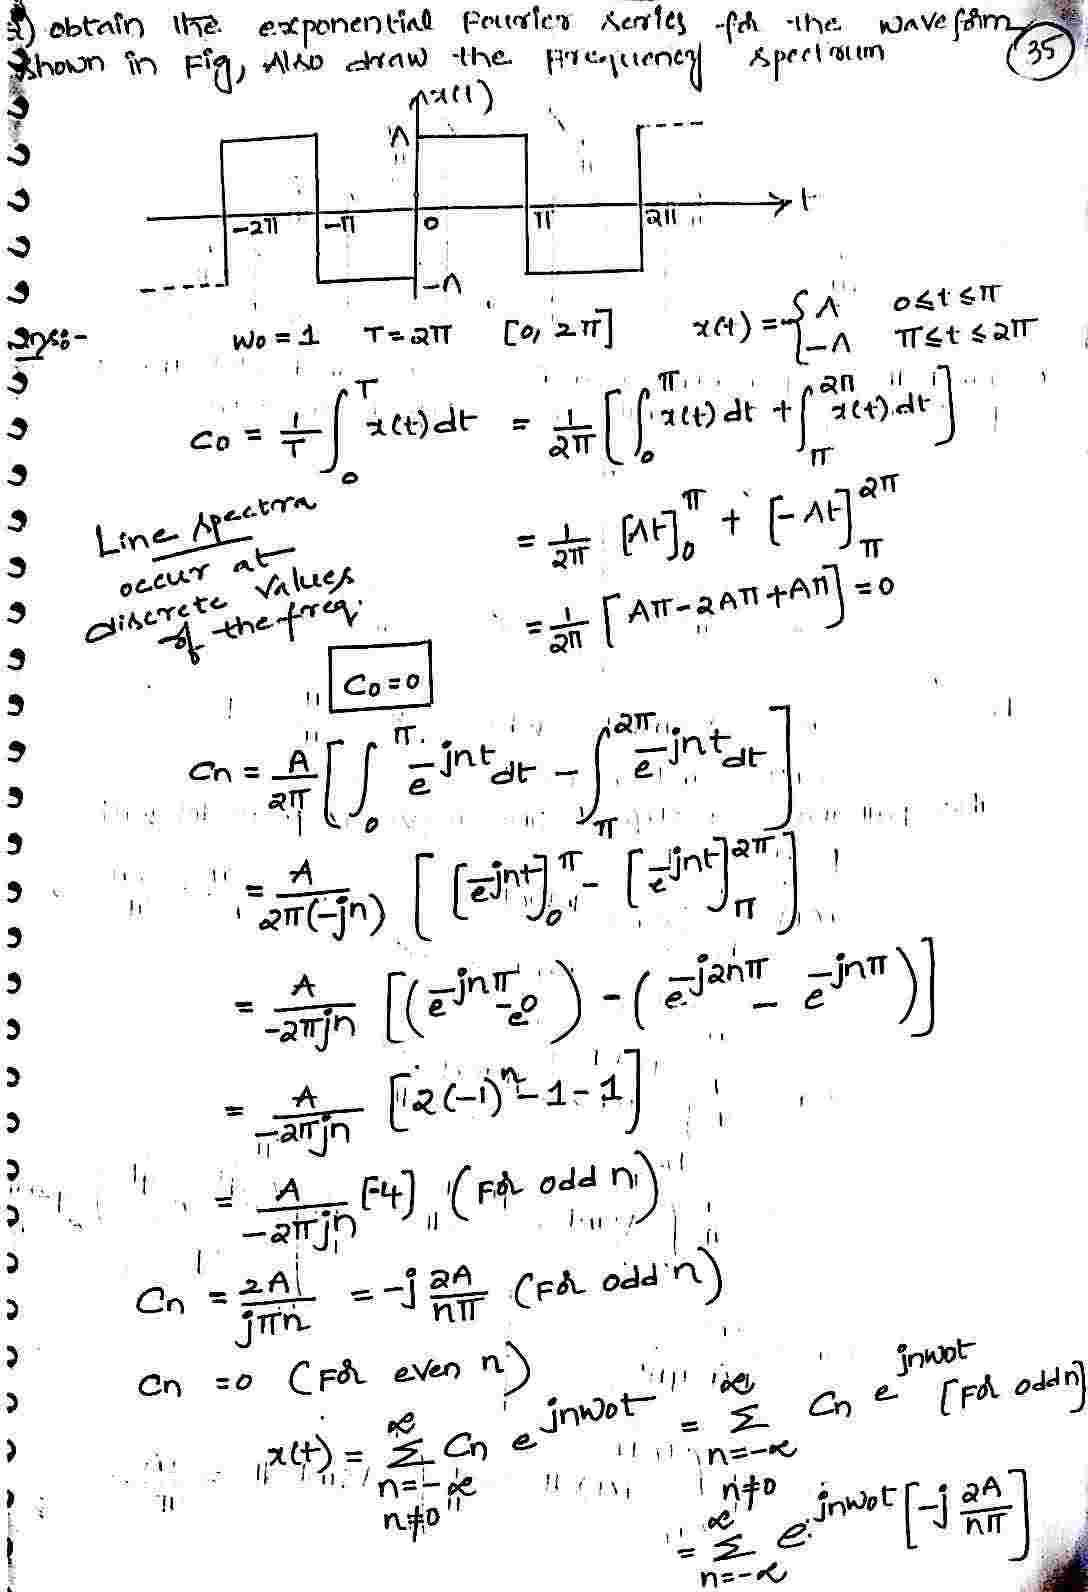 2) obtain the exponential Fourier series for the waveform
shown in Fig, Also draw the Frequency spectrum
35
x(t)
A
-2π -π 0 π 2π t
-A
Ans:- ω0 = 1 T = 2π [0, 2π] x(t) = { A 0≤t≤π
-A π≤t≤2π
C0 = 1/T ∫_0^T x(t) dt = 1/2π [ ∫_0^π x(t) dt + ∫_π^2π x(t).dt ]
= 1/2π [At]_0^π + [-At]_π^2π
= 1/2π [Aπ - 2Aπ + Aπ] = 0
Line spectra
occur at
discrete values
of the freq.
C0 = 0
Cn = A/2π [ ∫_0^π e^-jnt dt - ∫_π^2π e^-jnt dt ]
= A/2π(-jn) [ [e^-jnt]_0^π - [e^-jnt]_π^2π ]
= A/-2πjn [ (e^-jnπ - e^0) - (e^-j2nπ - e^-jnπ) ]
= A/-2πjn [ 2(-1)^n - 1 - 1 ]
= A/-2πjn [-4] (For odd n)
Cn = 2A/jπn = -j 2A/nπ (For odd n)
Cn = 0 (For even n)
x(t) = ∑_{n=-∞, n≠0}^∞ Cn e^jnω0t = ∑_{n=-∞, n≠0}^∞ Cn e^jnω0t [For odd n]
= ∑_{n=-∞}^∞ e^jnω0t [-j 2A/nπ]